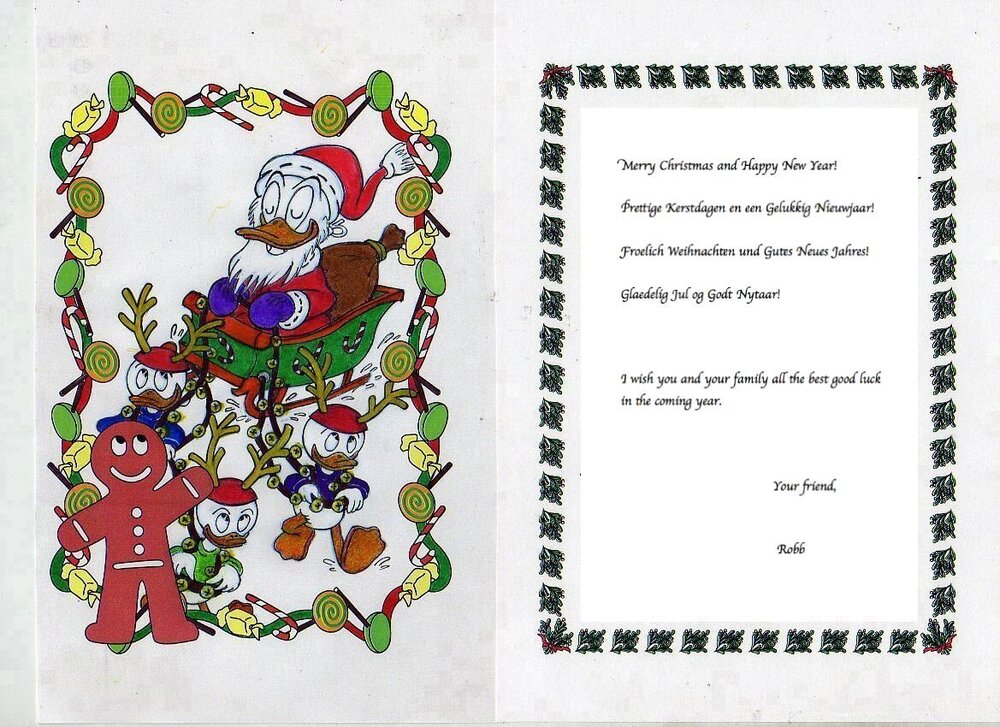 Merry Christmas and Happy New Year!
Prettige Kerstdagen en een Gelukkig Nieuwjaar!
Froelich Weihnachten und Gutes Neues Jahres!
Glaedelig Jul og Godt Nytaar!
I wish you and your family all the best good luck
in the coming year.
Your friend,
Robb